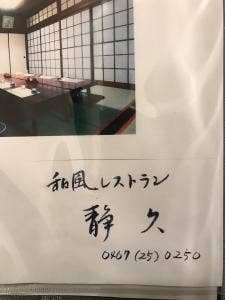 和風レストラン
静久
0467(25)0250